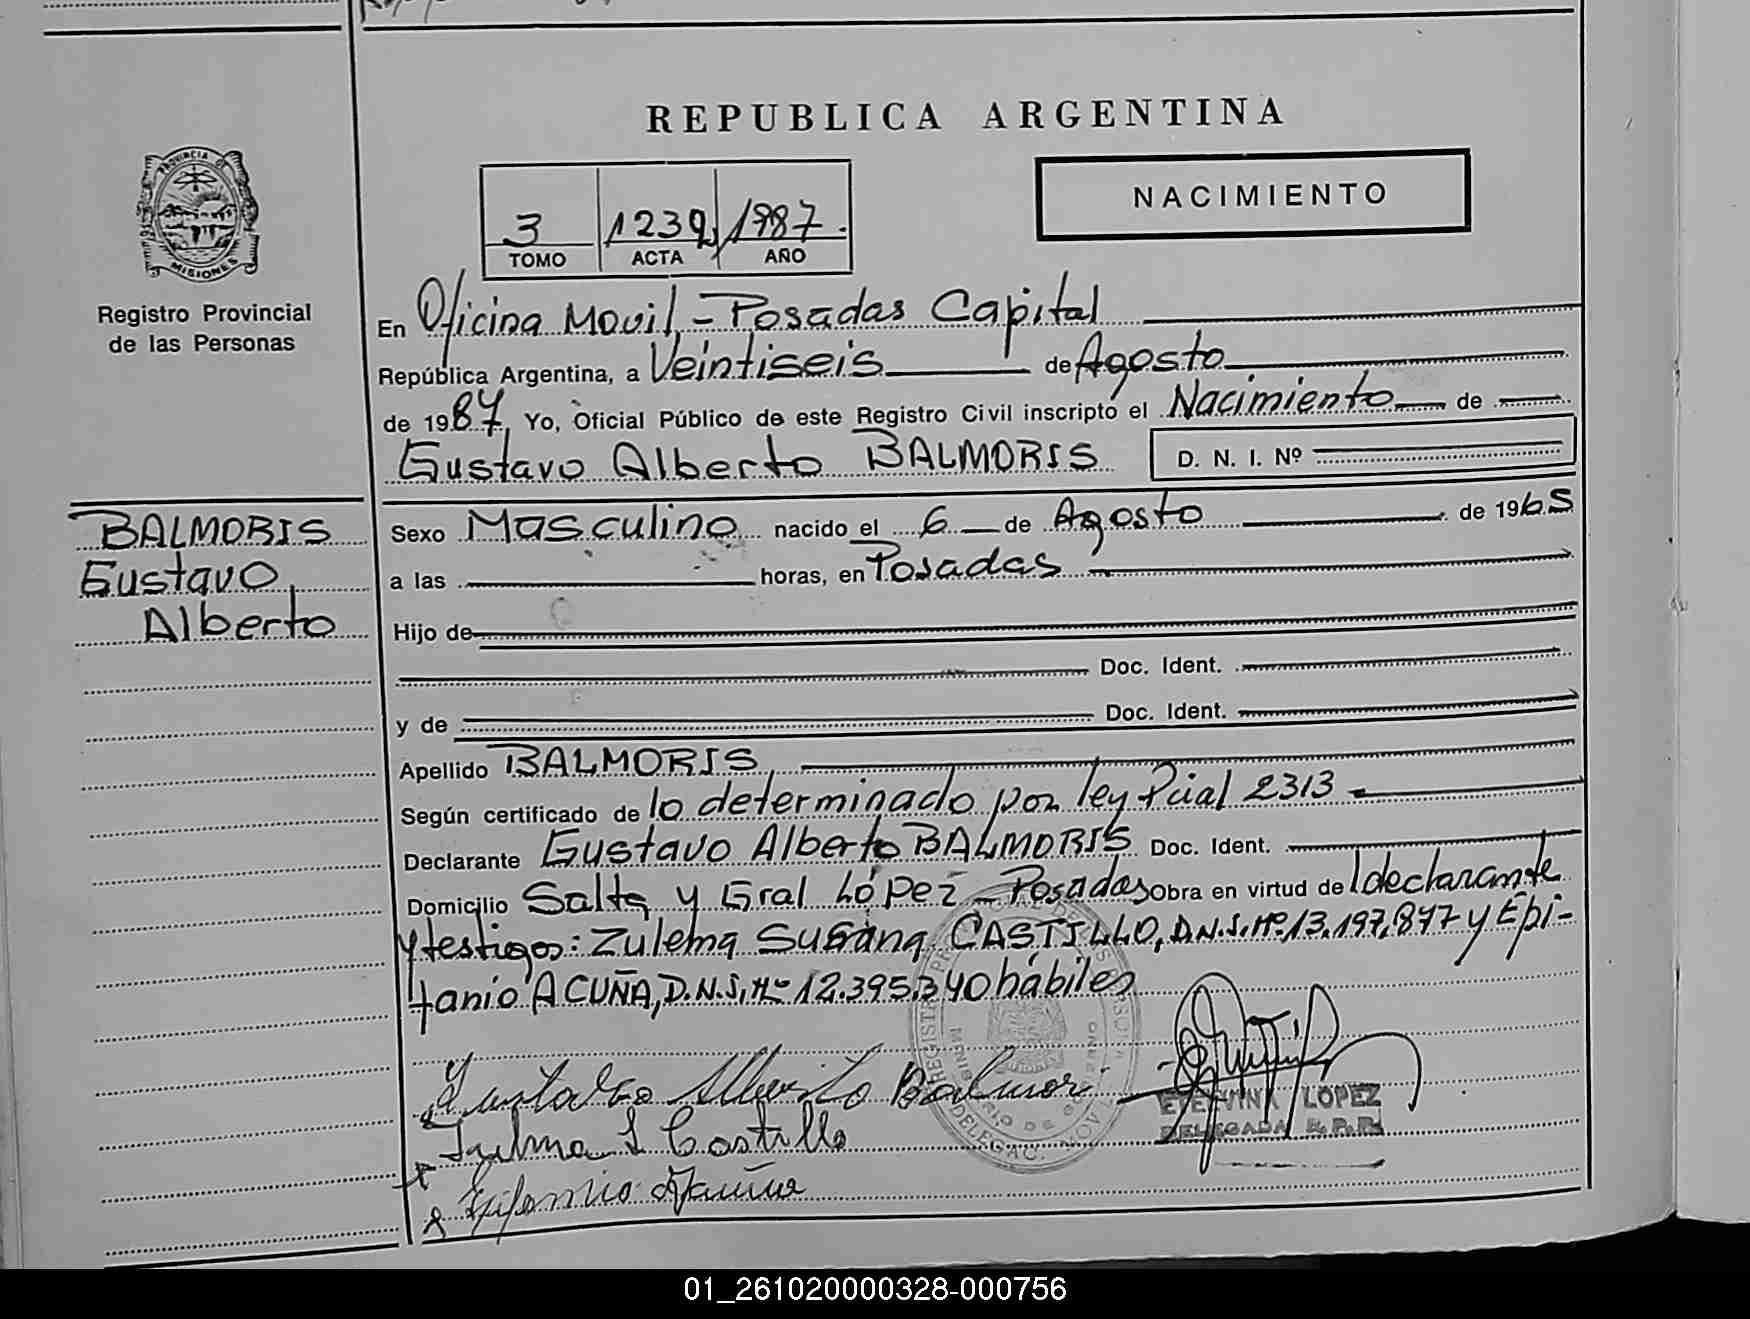 REPUBLICA ARGENTINA
PROVINCIA DE
MISIONES
Registro Provincial
de las Personas
3 1239 1987
TOMO ACTA AÑO
NACIMIENTO
En Oficina Movil - Posadas Capital
República Argentina, a Veintiseis de Agosto
de 1987, Yo, Oficial Público de este Registro Civil inscripto el Nacimiento de
Gustavo Alberto BALMORIS D. N. I. Nº
BALMORIS
Gustavo
Alberto
Sexo Masculino nacido el 6 de Agosto de 1965
a las horas, en Posadas
Hijo de
Doc. Ident.
y de Doc. Ident.
Apellido BALMORIS
Según certificado de lo determinado por ley Pcial 2313
Declarante Gustavo Alberto BALMORIS Doc. Ident.
Domicilio Salta y Gral López - Posadas Obra en virtud de l declarante
y testigos: Zulema Susana CASTILLO, D.N.I. Nº 13.197.877 y Epi-
fanio ACUÑA, D.N.I. Nº 12.395.340 hábiles
Gustavo Alberto Balmori
Zulma S Castillo
Epifanio Acuña
LOPEZ
DELEGADA R.P.P.
01_261020000328-000756